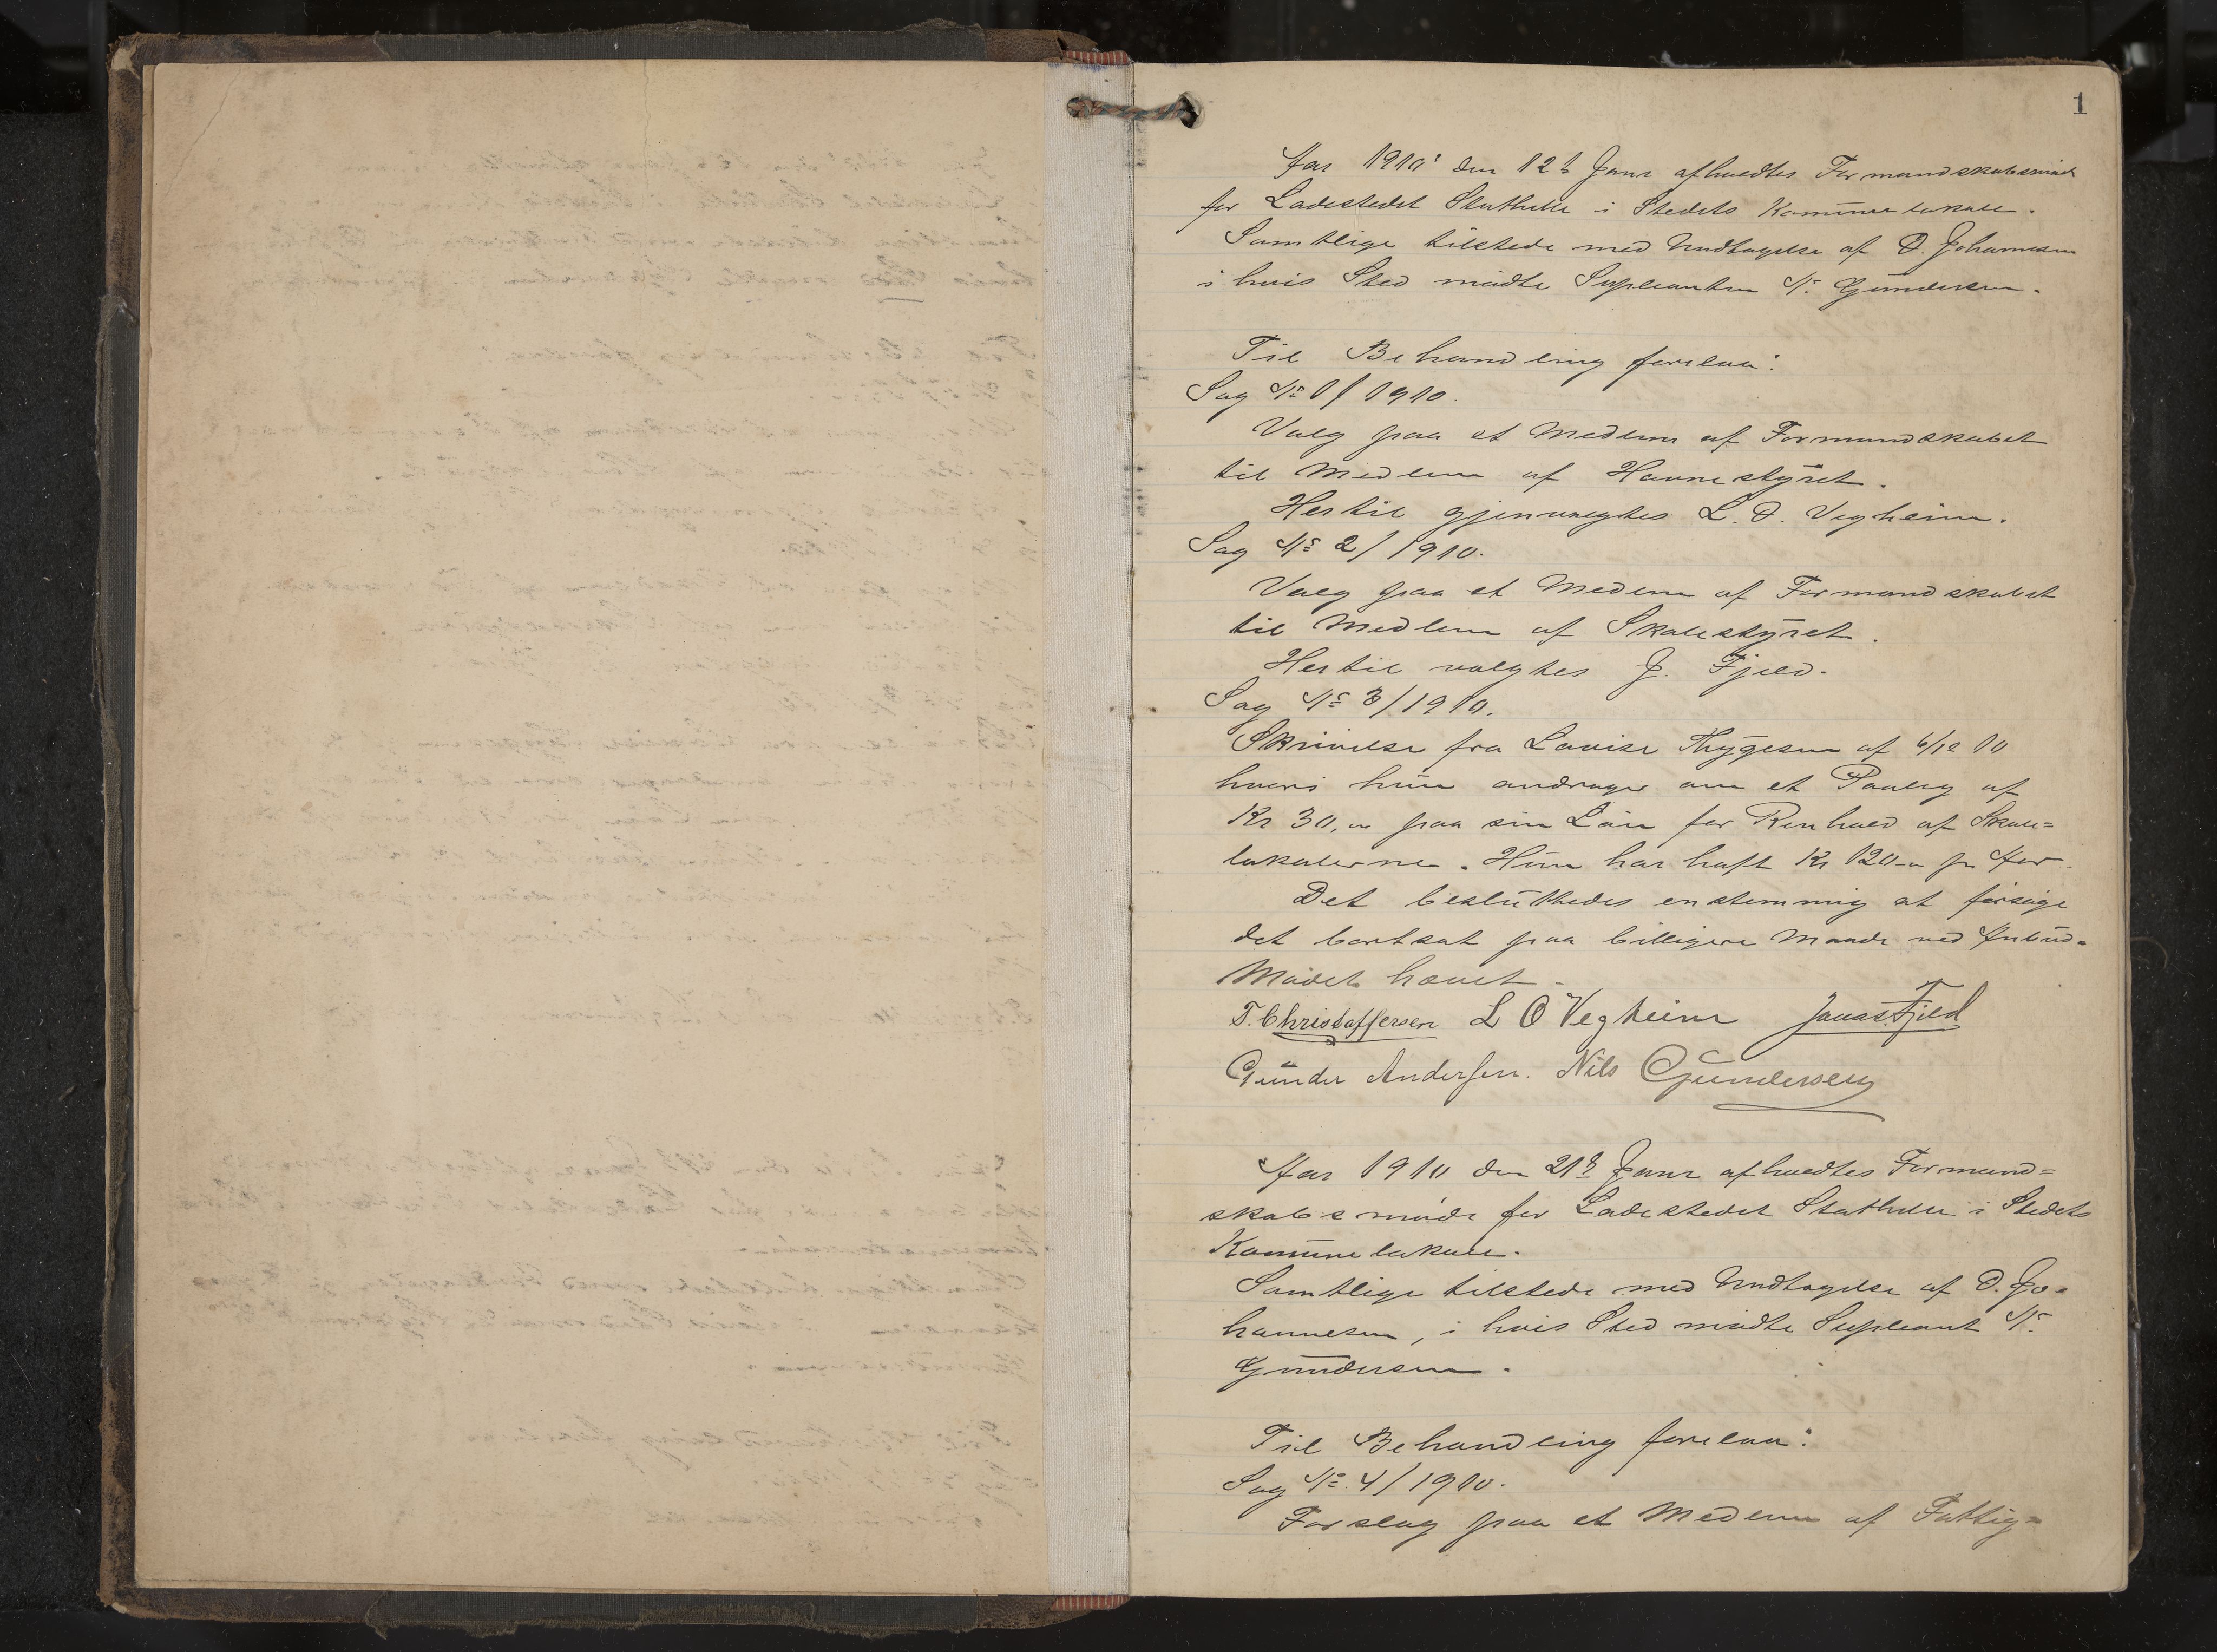 1
Aar 1910 den 12te Janr afholdtes Formandskabsmøde
for Ladestedet Stathelle i Stedets Kommunelokale.
Samtlige tilstede med Undtagelse af D. Johannesen
i hvis Sted mødte Supleanten N. Gundersen.
Til Behandling forelaa:
Sag No 1/1910.
Valg paa et Medlem af Formandskabet
til Medlem af Havnestyret.
Hertil gjenvalgtes L. O. Vegheim.
Sag No 2/1910.
Valg paa et Medlem af Formandskabet
til Medlem af Skolestyret.
Hertil valgtes J. Fjeld.
Sag No 3/1910.
Skrivelse fra Lovise Thygesen af
hvori hun andrager om et Paalæg af
Kr 30,00 paa sin Løn for Renhold af Skole=
lokalerne. Hun har haft Kr 120-00 pr Aar.
Det besluttedes enstemmig at forsøge
det bortsat paa billigere Maade ved Anbud.
Mødet hævet.
T. Christoffersen L O Vegheim Jonas Fjeld
Gunder Andersen. Nils Gundersen
Aar 1910 den 21de Janr afholdtes Formand=
skabsmøde for Ladestedet Stathelle i Stedets
Kommunelokale.
Samtlige tilstede med Undtagelse af D. Jo=
hannesen, i hvis Sted mødte Supleant N.
Gundersen.
Til Behandling forelaa:
Sag No 4/1910.
Forslag paa et Medlem af Fattig=